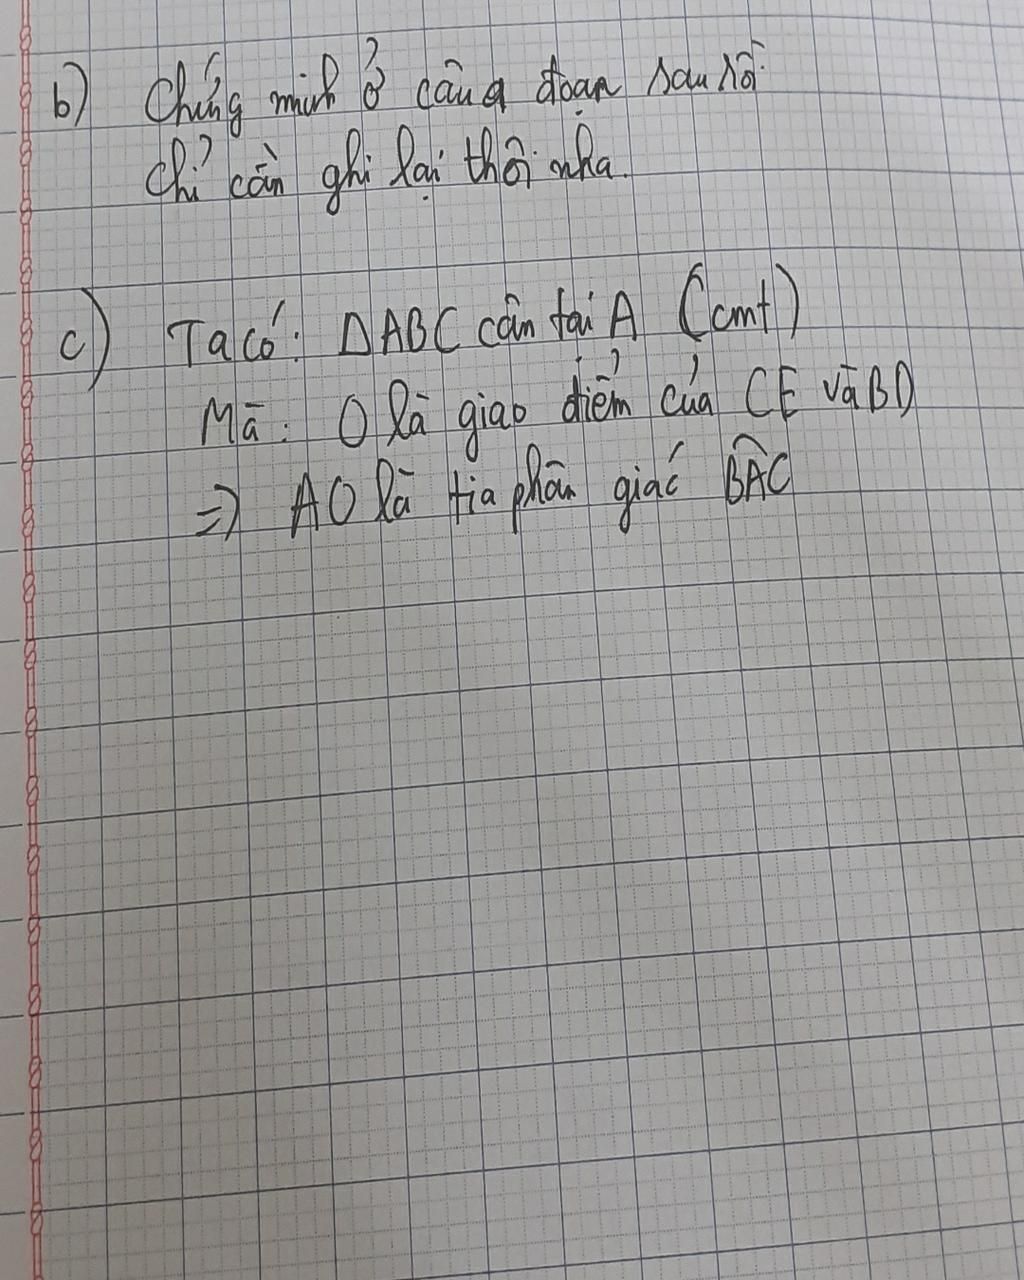 b) Chứng minh ở câu a đoạn sau rồi
chỉ cần ghi lại thôi nha.
c) Ta có: ΔABC cân tại A (cmt)
Mà: O là giao điểm của CE và BD
=> AO là tia phân giác \widehat{BAC}